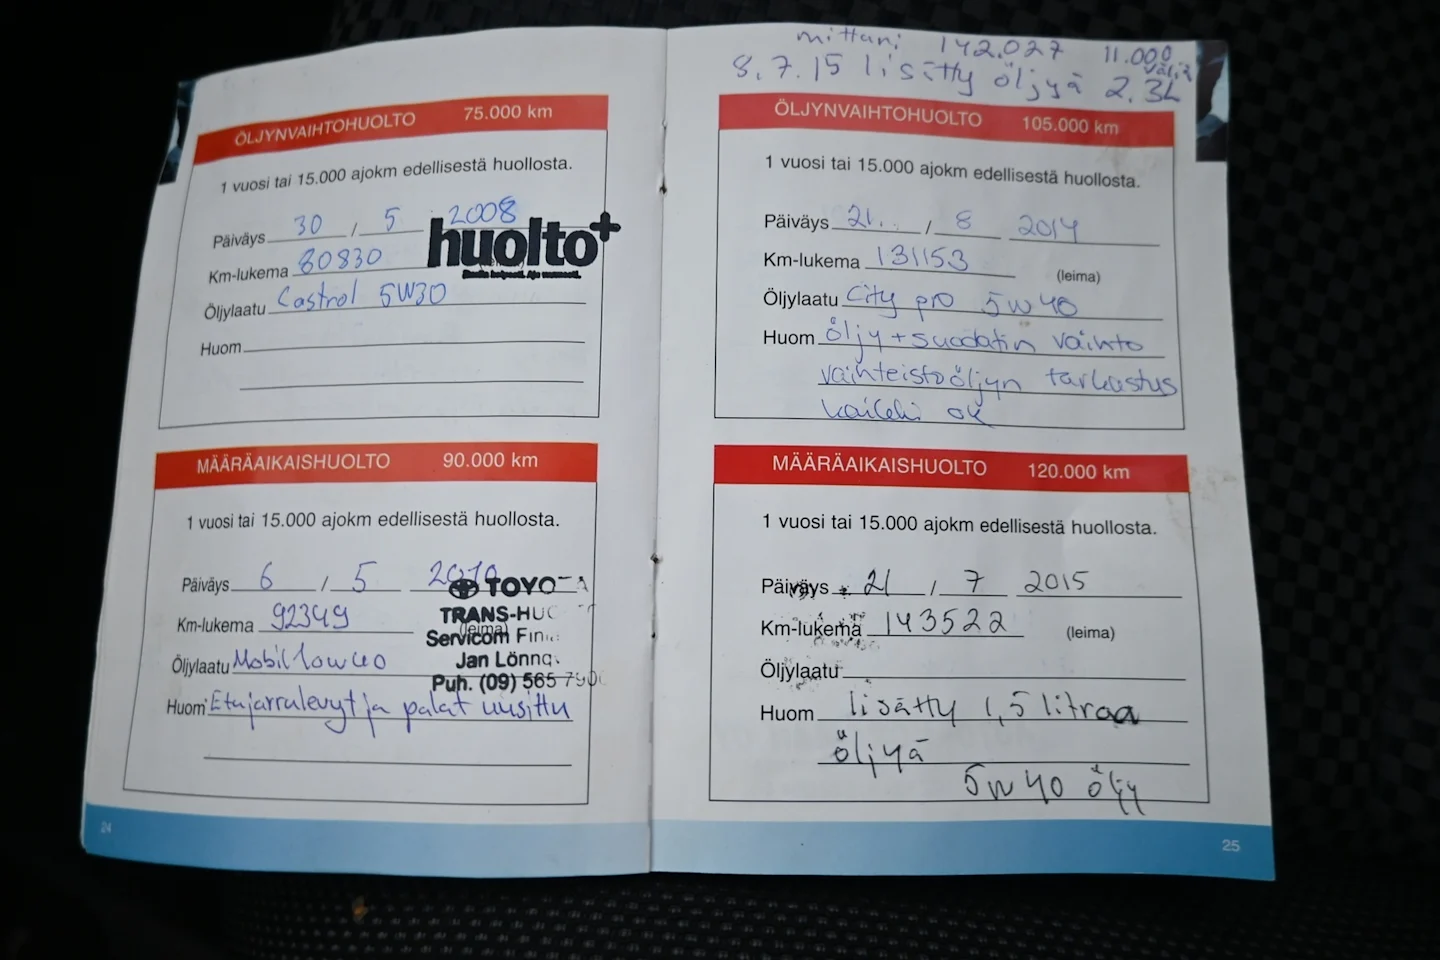 ÖLJYNVAIHTOHUOLTO 75.000 km
1 vuosi tai 15.000 ajokm edellisestä huollosta.
Päiväys 30 / 5 2008
huolto+
Km-lukema 80830
Öljylaatu Castrol 5W30
Huom
MÄÄRÄAIKAISHUOLTO 90.000 km
1 vuosi tai 15.000 ajokm edellisestä huollosta.
Päiväys 6 / 5 2010
TOYOTA
Km-lukema 92349
TRANS-HUO
(leima)
Servicom Fin
Öljylaatu Mobil 10w40
Jan Lönnq
Puh. (09) 565 790
Huom Etujarrulevyt ja palat uusittu
24
mittari 142.027 11.000
väliä
8.7.15 lisätty öljyä 2.3L
ÖLJYNVAIHTOHUOLTO 105.000 km
1 vuosi tai 15.000 ajokm edellisestä huollosta.
Päiväys 21. / 8 2014
Km-lukema 131153 (leima)
Öljylaatu City pro 5w40
Huom öljy + suodatin vaihto
vaihteistoöljyn tarkastus
kaikki ok
MÄÄRÄAIKAISHUOLTO 120.000 km
1 vuosi tai 15.000 ajokm edellisestä huollosta.
Päiväys 21 / 7 2015
Km-lukema 143522 (leima)
Öljylaatu
Huom lisätty 1,5 litraa
öljyä
5w40 öljy
25